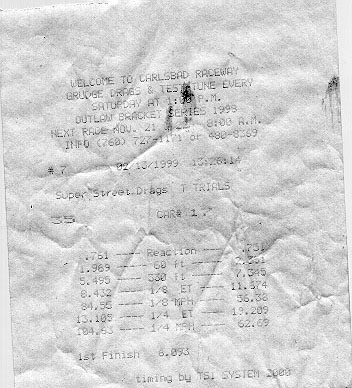 WELCOME TO CARLSBAD RACEWAY
GRUDGE DRAGS & TEST TUNE EVERY
SATURDAY AT 1:00 P.M.
OUTLAW BRACKET SERIES 1998
NEXT RACE NOV. 21 8:00 A.M.
INFO (760) or 480-8369
# 7 02/13/1999 13:26:14
Super Street Drags T TRIALS
CAR# 1
.761 ---- Reaction ---- .731
1.969 ---- 60 ft ----
5.495 ---- 330 ft ---- 7.345
8.432 ---- 1/8 ET ---- 11.574
84.55 ---- 1/8 MPH ----
13.105 ---- 1/4 ET ---- 19.209
104.63 ---- 1/4 MPH ---- 62.69
1st Finish 6.093
timing by TSI SYSTEM 2000